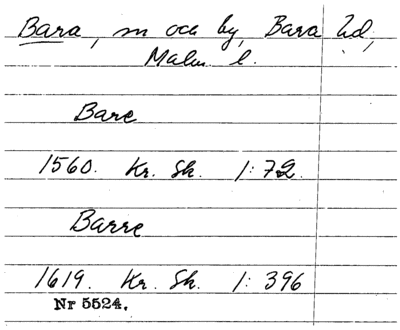 Bara, sn och by, Bara hd,
Malm. l.
Bare
1560. Kr. Sk. 1:72.
Barre
1619. Kr. Sk. 1:396
Nr 5524.